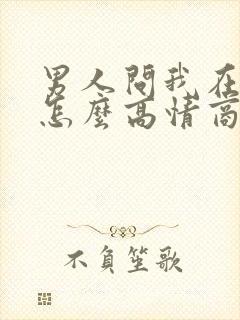 男人問我在
怎麼高情商
不負笙歌